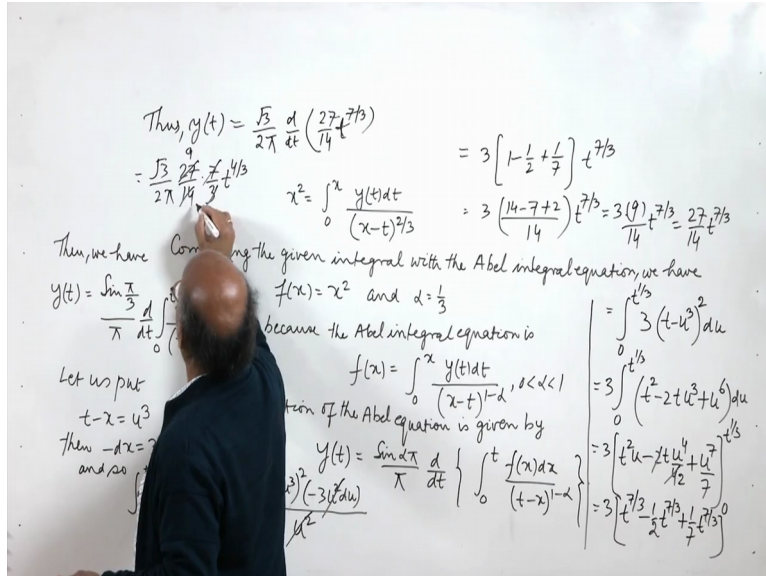 Thus, y(t) = √3/2π d/dt (27/14 t^7/3)
= √3/2π 27/14 · 7/3 t^4/3
9
x² = ∫₀^x y(t)dt/(x-t)^2/3
= 3 [1 - 1/2 + 1/7] t^7/3
= 3 (14-7+2/14) t^7/3 = 3(9)/14 t^7/3 = 27/14 t^7/3
Then, we have
the given integral with the Abel integral equation, we have
y(t) = Sin π/3 / π d/dt ∫₀
f(x) = x² and α = 1/3
because the Abel integral equation is
f(x) = ∫₀^x y(t)dt/(x-t)^1-α, 0<α<1
Let us put
t-x = u³
then -dx =
and so
of the Abel equation is given by
y(t) = Sin απ/π d/dt { ∫₀^t f(x)dx/(t-x)^1-α }
)² (-3u²du)
u²
= ∫₀^t^1/3 3(t-u³)² du
= 3 ∫₀^t^1/3 (t² - 2tu³ + u⁶) du
= 3 [t²u - 2t u⁴/4 2 + u⁷/7]₀^t^1/3
= 3 [t^7/3 - 1/2 t^7/3 + 1/7 t^7/3]